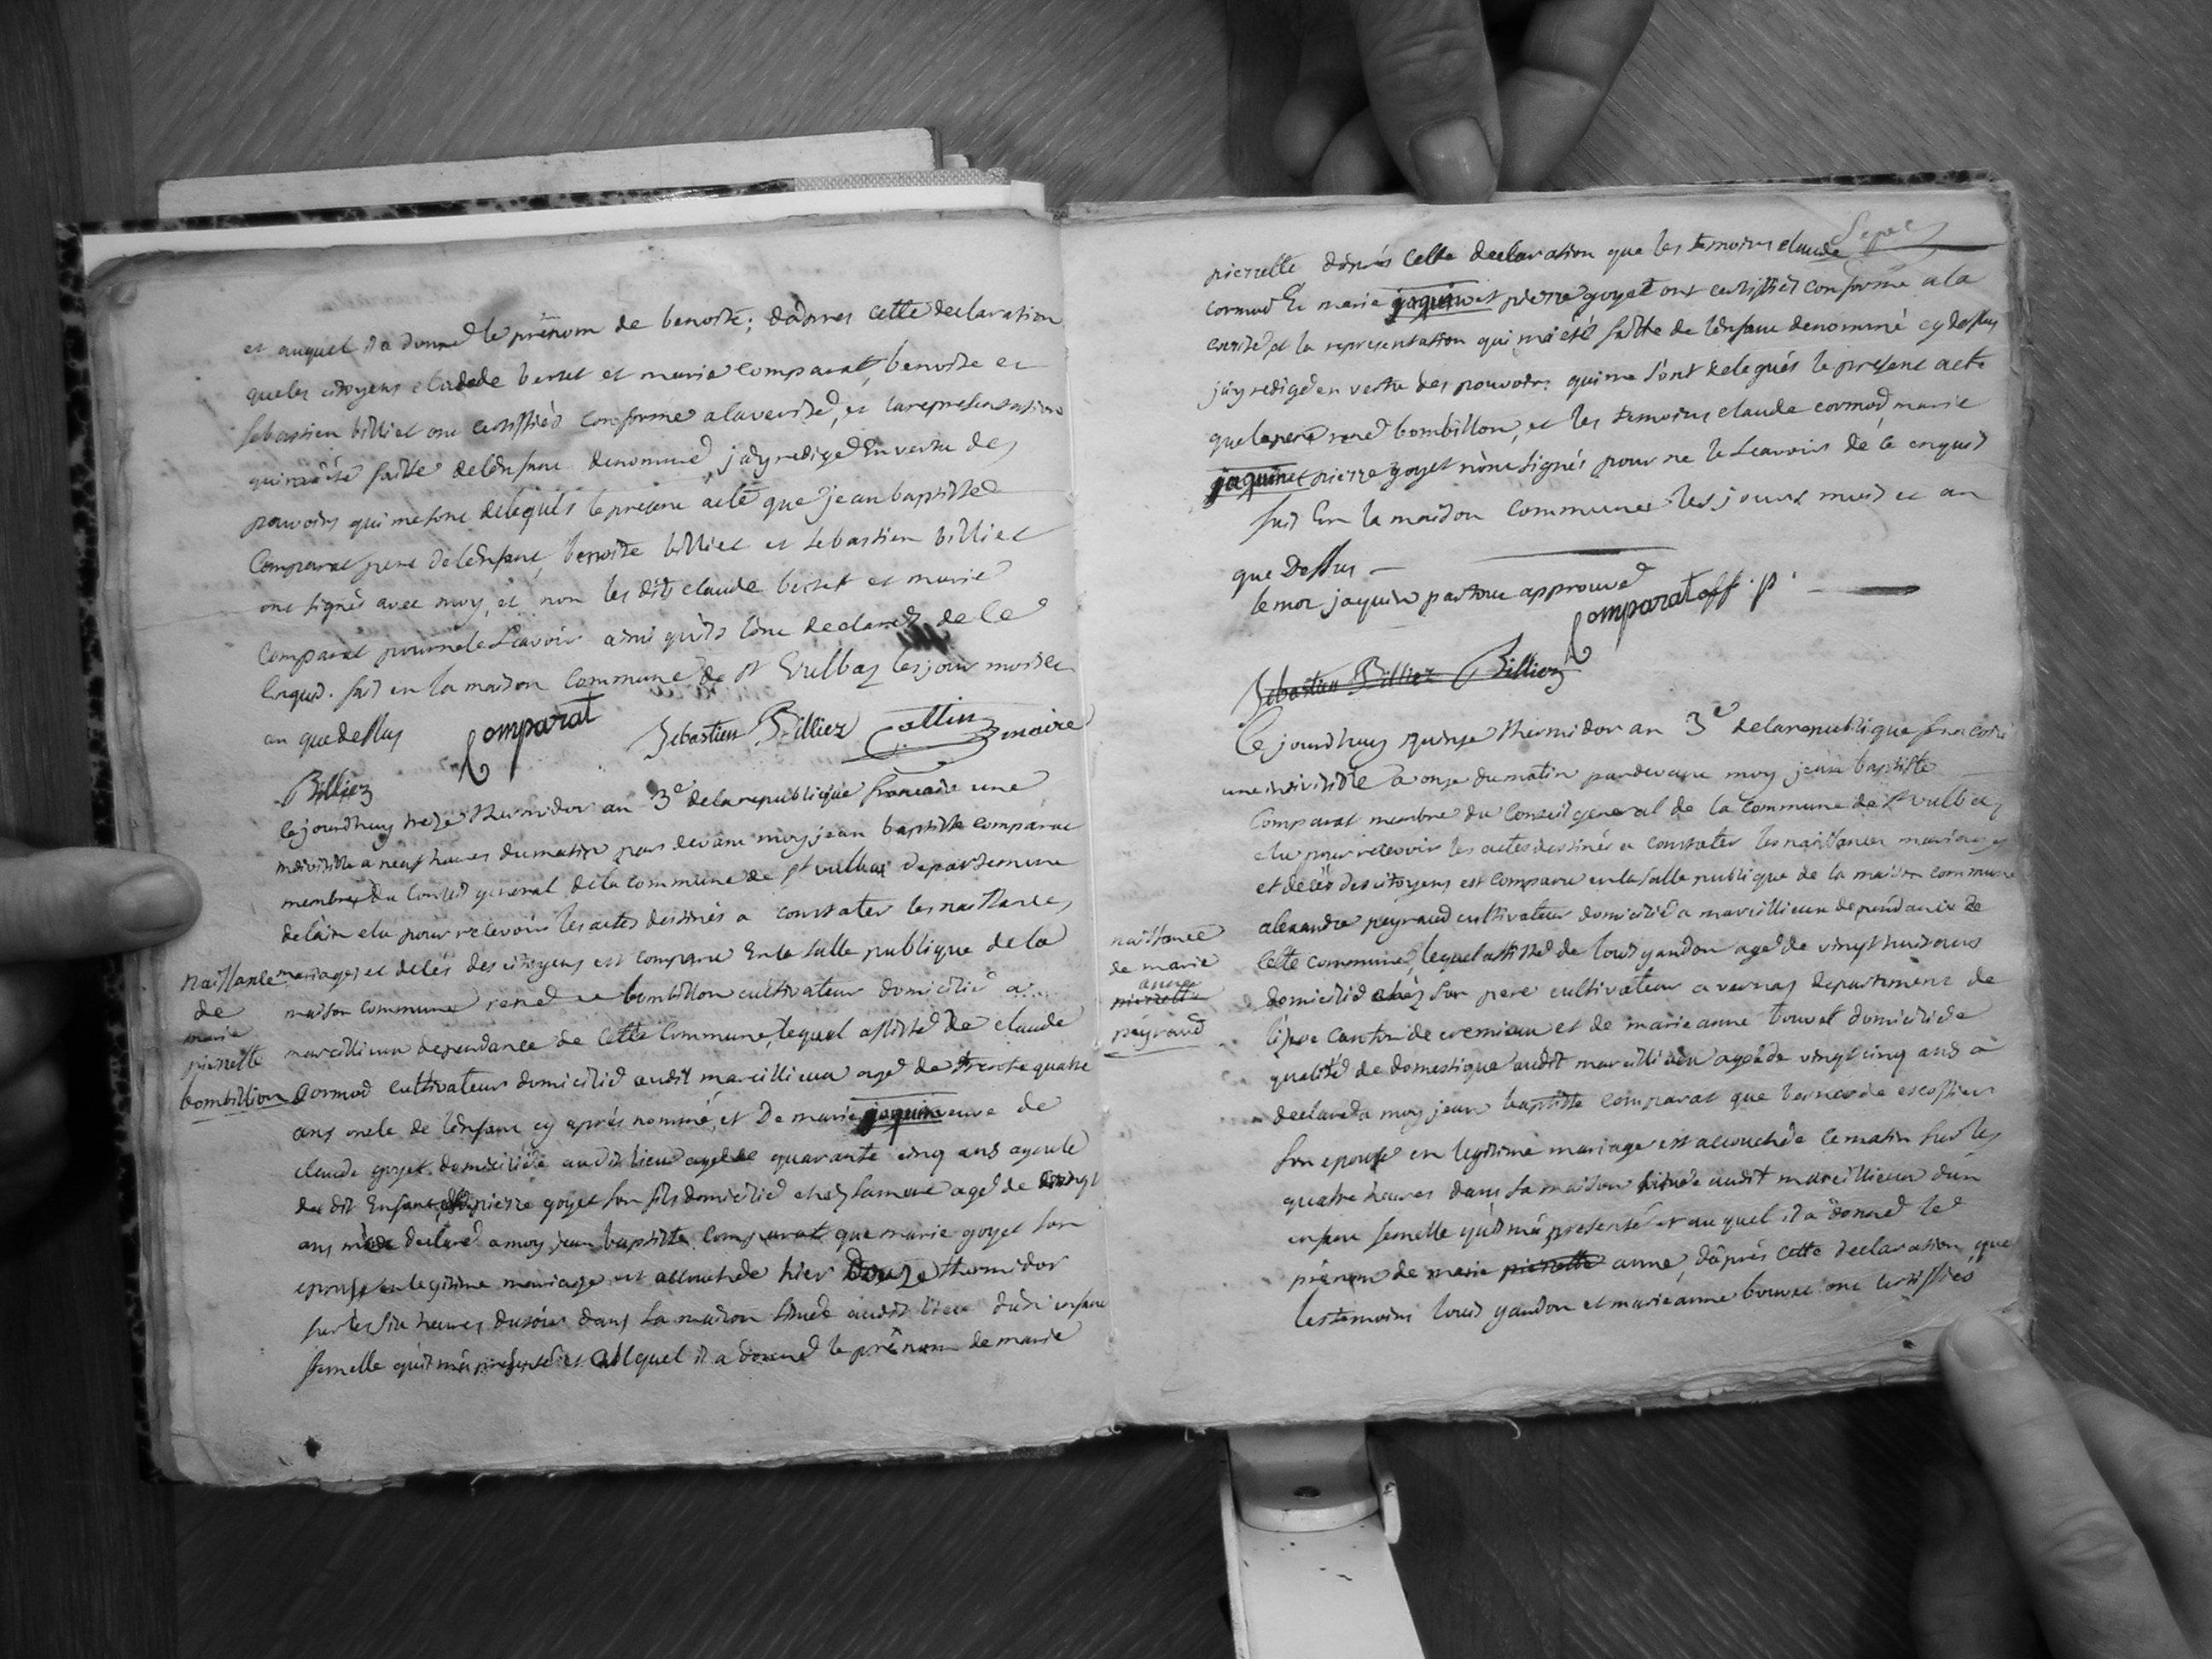 et auquel il a donné le prénom de benoite; daprès cette declaration
que les citoyens claude berset et marie comparat, benoite et
sebastien billiet ont certiffiés conforme a la verité, et la representation
qui ma été faitte de lenfant denommé, jay redigé En vertu des
pouvoirs qui me sont delegués le present acte que jean baptiste
Comparat pere de lenfant, benoite billiet et sebastien billiet
ont signés avec moy, et non les dits claude berset et marie
Comparat pour ne le scavoir ainsi quils lont declarés de ce
Enquis. fait en la maison Commune de st Vulbaz les jour mois et
an que dessus
Comparat
Sebastien Billiez
Collin maire
Billiez
Naissance
de
marie
pierrette
bombillion
Ce jourdhuy treize thermidor an 3e de la republique francaise une
indivisible a neuf heures du matin par devant moy jean baptiste comparat
membre du Conseil general de la commune de st vulbas departement
de lain elu pour recevoir les actes destinés a constater les naissances
mariages et delés des citoyens est comparu En la salle publique de la
maison commune rené bombillon cultivateur domicilié a
marcillieux dependance de cette commune, lequel assisté de claude
cormod cultivateur domicilié audit marcillieux agé de trente quatre
ans oncle de lenfant cy après nommé, et De marie jaquin veuve de
claude goyet domiciliée audit lieu agée de quarante cinq ans ayeule
du dit Enfant, pierre goyet son fils domicilié chez sa mere agé de vingt
ans declaré a moy jean baptiste Comparat que marie goyet son
epouse en legitime mariage est accouchée hier Douze thermidor
sur les six heures du soir dans sa maison située audit lieu dudi enfant
femelle quil ma presenté et auquel il a donné le prénom de marie
Sept
pierrette daprès cette declaration que les temoins claude
cormod Et marie jaquin et pierre goyet ont certiffiés conforme a la
verité et la representation qui ma été faitte de lenfant denommé cy dessus
jay redigé en vertu des pouvoirs qui me sont delegués le present acte
que le pere rené bombillon, et les temoins claude cormod marie
jaquin et pierre goyet nont signés pour ne le scavoir de ce enquis
fait En la maison Commune les jours mois et an
que Dessus
le mot jaquin partout approuvé
Comparat off. p.
Sebastien Billiez Billiez
naissance
de marie
anne
pierrette
peyraud
Ce jourdhuy quinze thermidor an 3e de la republique francaise
une indivisible a onze du matin pardevant moy jean baptiste
Comparat membre du Conseil general de la commune de st vulbaz
elu pour recevoir les actes destinés a constater les naissances mariages
et delés des citoyens est comparu en la salle publique de la maison commune
alexandre peyraud cultivateur domicilié a marcillieux dependance de
cette commune, lequel assisté de louis gandon agé de vingt huit ans
domicilié chez son pere cultivateur a vernas departement de
lizere canton de cremieu et de marie anne bouvet domiciliée
qualité de domestique audit marcillieux agée de vingt cinq ans a
declaré a moy jean baptiste comparat que bernarde escoffier
son epouse en legitime mariage est accouchée ce matin sur les
quatre heures dans sa maison située audit marcillieux dun
enfant femelle quil ma presenté et auquel il a donné le
prénom de marie pierrette anne, daprés cette declaration que
les temoins louis gandon et marie anne bouvet ont certiffiés